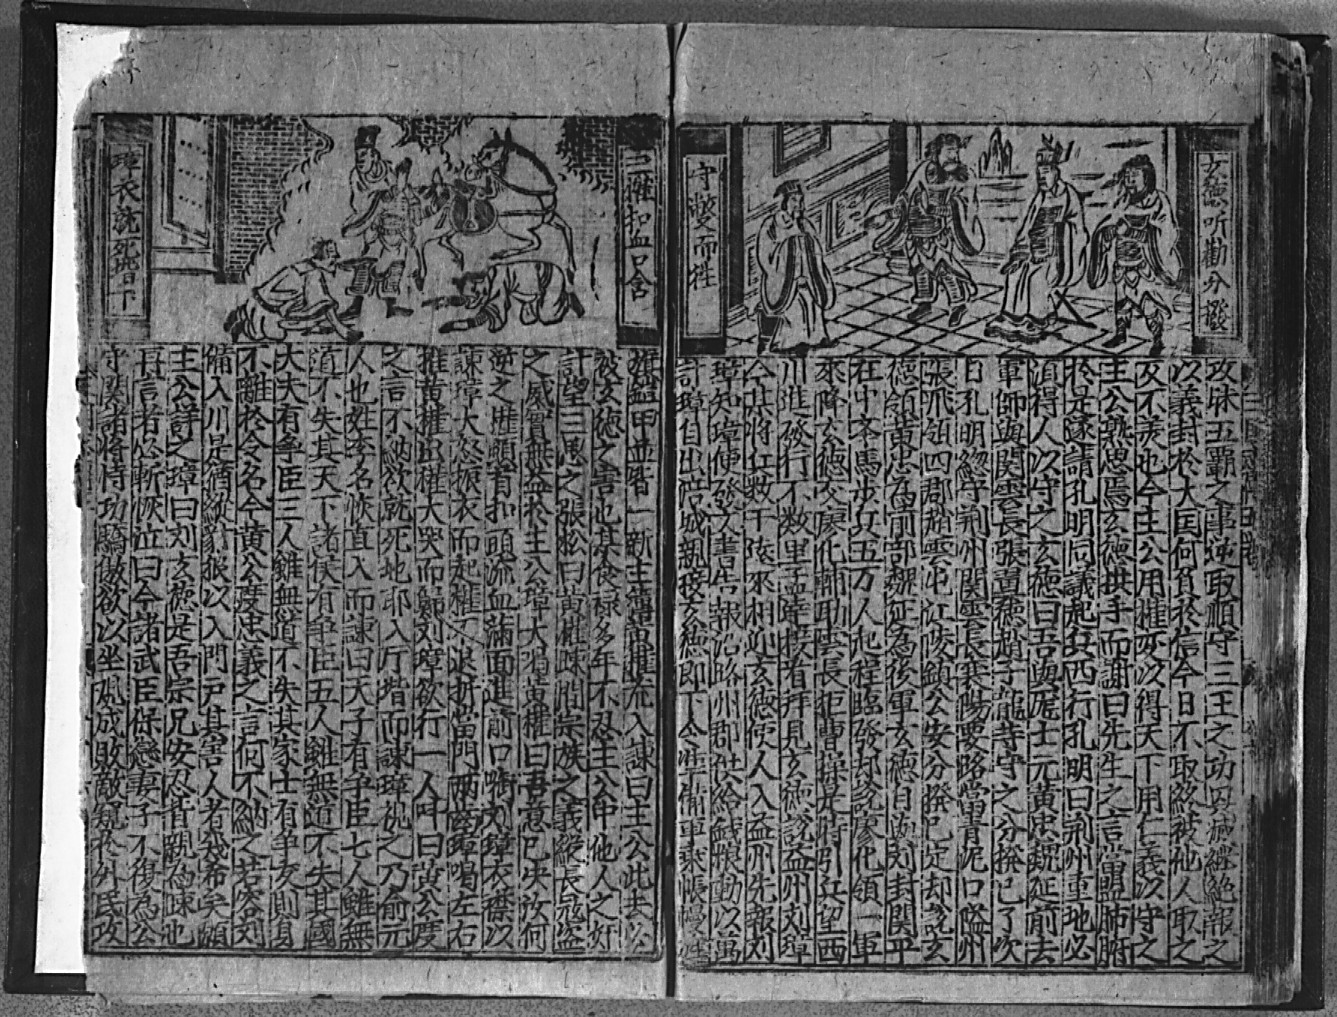 玄德听勸分撥
守㪯而往
攻昧五霸之事逆取順守三王之功因滅繼絕報之
以義封於大国何負於信今日不取終被他人取之
反不美也今主公用權変以得天下用仁義以守之
主公熟思焉玄德拱手而謝曰先生之言當盟肺腑
於是遂請孔明同議起兵西行孔明曰荊州重地必
須得人以守之玄德曰吾與龐士元黃忠魏延前去
軍師與関雲長張翼德趙子龍守之分撥已了次
日孔明緫守荊州関雲長襄陽要路當青泥口隘州
張飛領四郡趙雲屯江陵鎮公安分撥已定却說玄
德領黃忠為前部魏延為後軍玄德自與刘封関平
在中军馬步兵五万人起程臨發却說廖化領一軍
來降玄德交廖化輔助雲長拒曹操是時引兵望西
川進發行不数里孟達接着拜見玄德說益州刘璋
令其將兵数千遠來相迎玄德使人入益州先報刘
璋知璋便發文書告報沿路州郡供給錢粮動以萬
計璋自出涪城親接玄德即丁令準備車乘帳幔旌
王權扣血口含
璋衣就死堦下
旗鎧甲並皆一新主簿黃權荒入諫曰主公此去必
被玄德之害也某食禄多年不忍主公中他人之奸
計望三思之張松曰黃權疎間宗族之義縱長冦盜
之威實無益於主公璋大喝黃權曰吾意已决汝何
逆之權頓首扣頭流血滿面進前口啣刘璋衣襟以
諫璋大怒振衣而起權不退折當門兩齒璋喝左右
推黃權出權大哭而歸刘璋欲行一人叫曰黃公度
之言不納欲就死地耶入厅堦而諫璋視之乃俞元
人也姓李名恢直入而諫曰天子有争臣七人雖無
道不失其天下諸侯有争臣五人雖無道不失其國
大夫有争臣三人雖無道不失其家士有争友則身
不離於令名今黃公度忠義之言何不納之若容刘
備入川是猶縱豺狼以入門戶其害人者幾希矣願
主公詳之璋曰刘玄德是吾宗兄安忍背親為疎也
再言者必斬恢泣曰今諸武臣保戀妻子不復為公
守関諸將恃功驕傲欲以坐观成敗敵窺於外民攻